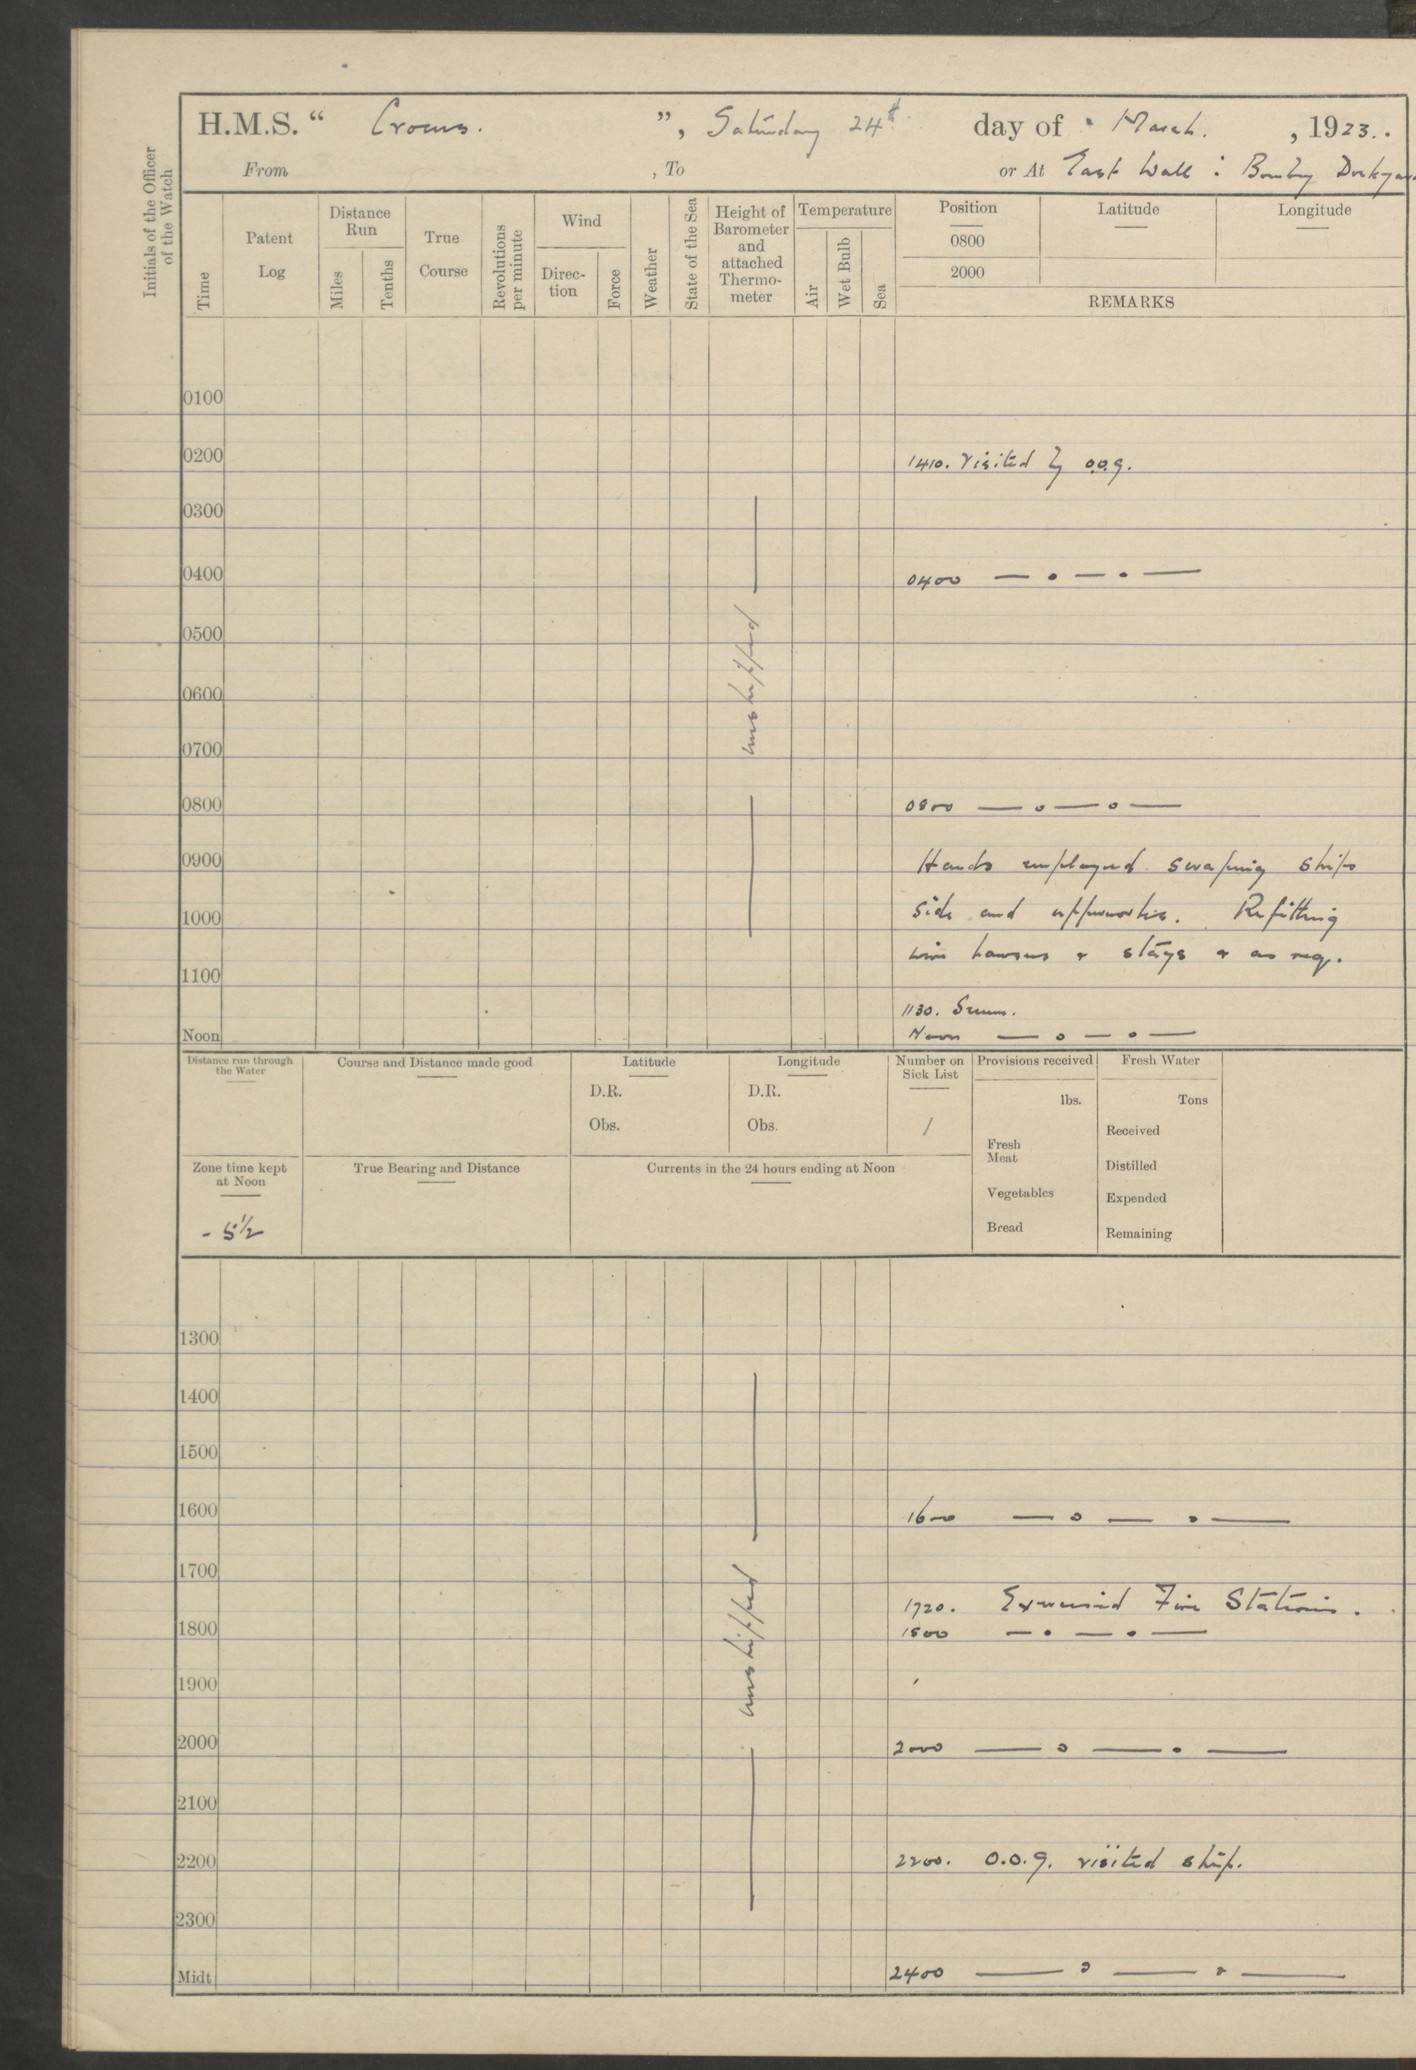 H.M.S. “ Crocus. ”, Saturday 24th day of March. , 1923.
From , To or At East Wall : Bombay Dockyard
Initials of the Officer of the Watch
Time
Patent Log
Distance Run
Miles
Tenths
True Course
Revolutions per minute
Wind
Direc-tion
Force
Weather
State of the Sea
Height of Barometer and attached Thermo-meter
Temperature
Air
Wet Bulb
Sea
Position Latitude Longitude
0800
2000
REMARKS
0100
0200 1410. Visited by O.O.G.
0300
0400 0400 — . — . —
0500
unshipped
0600
0700
0800 0800 — o — o —
0900 Hands employed scraping ships
1000 side and upperworks. Refitting
wire hawsers & stays & as req.
1100
1130.
Noon Noon — o — o —
Distance run through the Water
Course and Distance made good
Latitude
D.R.
Obs.
Longitude
D.R.
Obs.
Number on Sick List
1
Provisions received
lbs.
Fresh Meat
Vegetables
Bread
Fresh Water
Tons
Received
Distilled
Expended
Remaining
Zone time kept at Noon
- 5½
True Bearing and Distance
Currents in the 24 hours ending at Noon
1300
1400
1500
1600 1600 — o — o —
1700
unshipped
1720. Exercised Fire Stations.
1800 1800 — . — . —
1900
2000 2000 — o — . —
2100
2200 2200. O.O.G. visited ship.
2300
Midt 2400 — o — o —